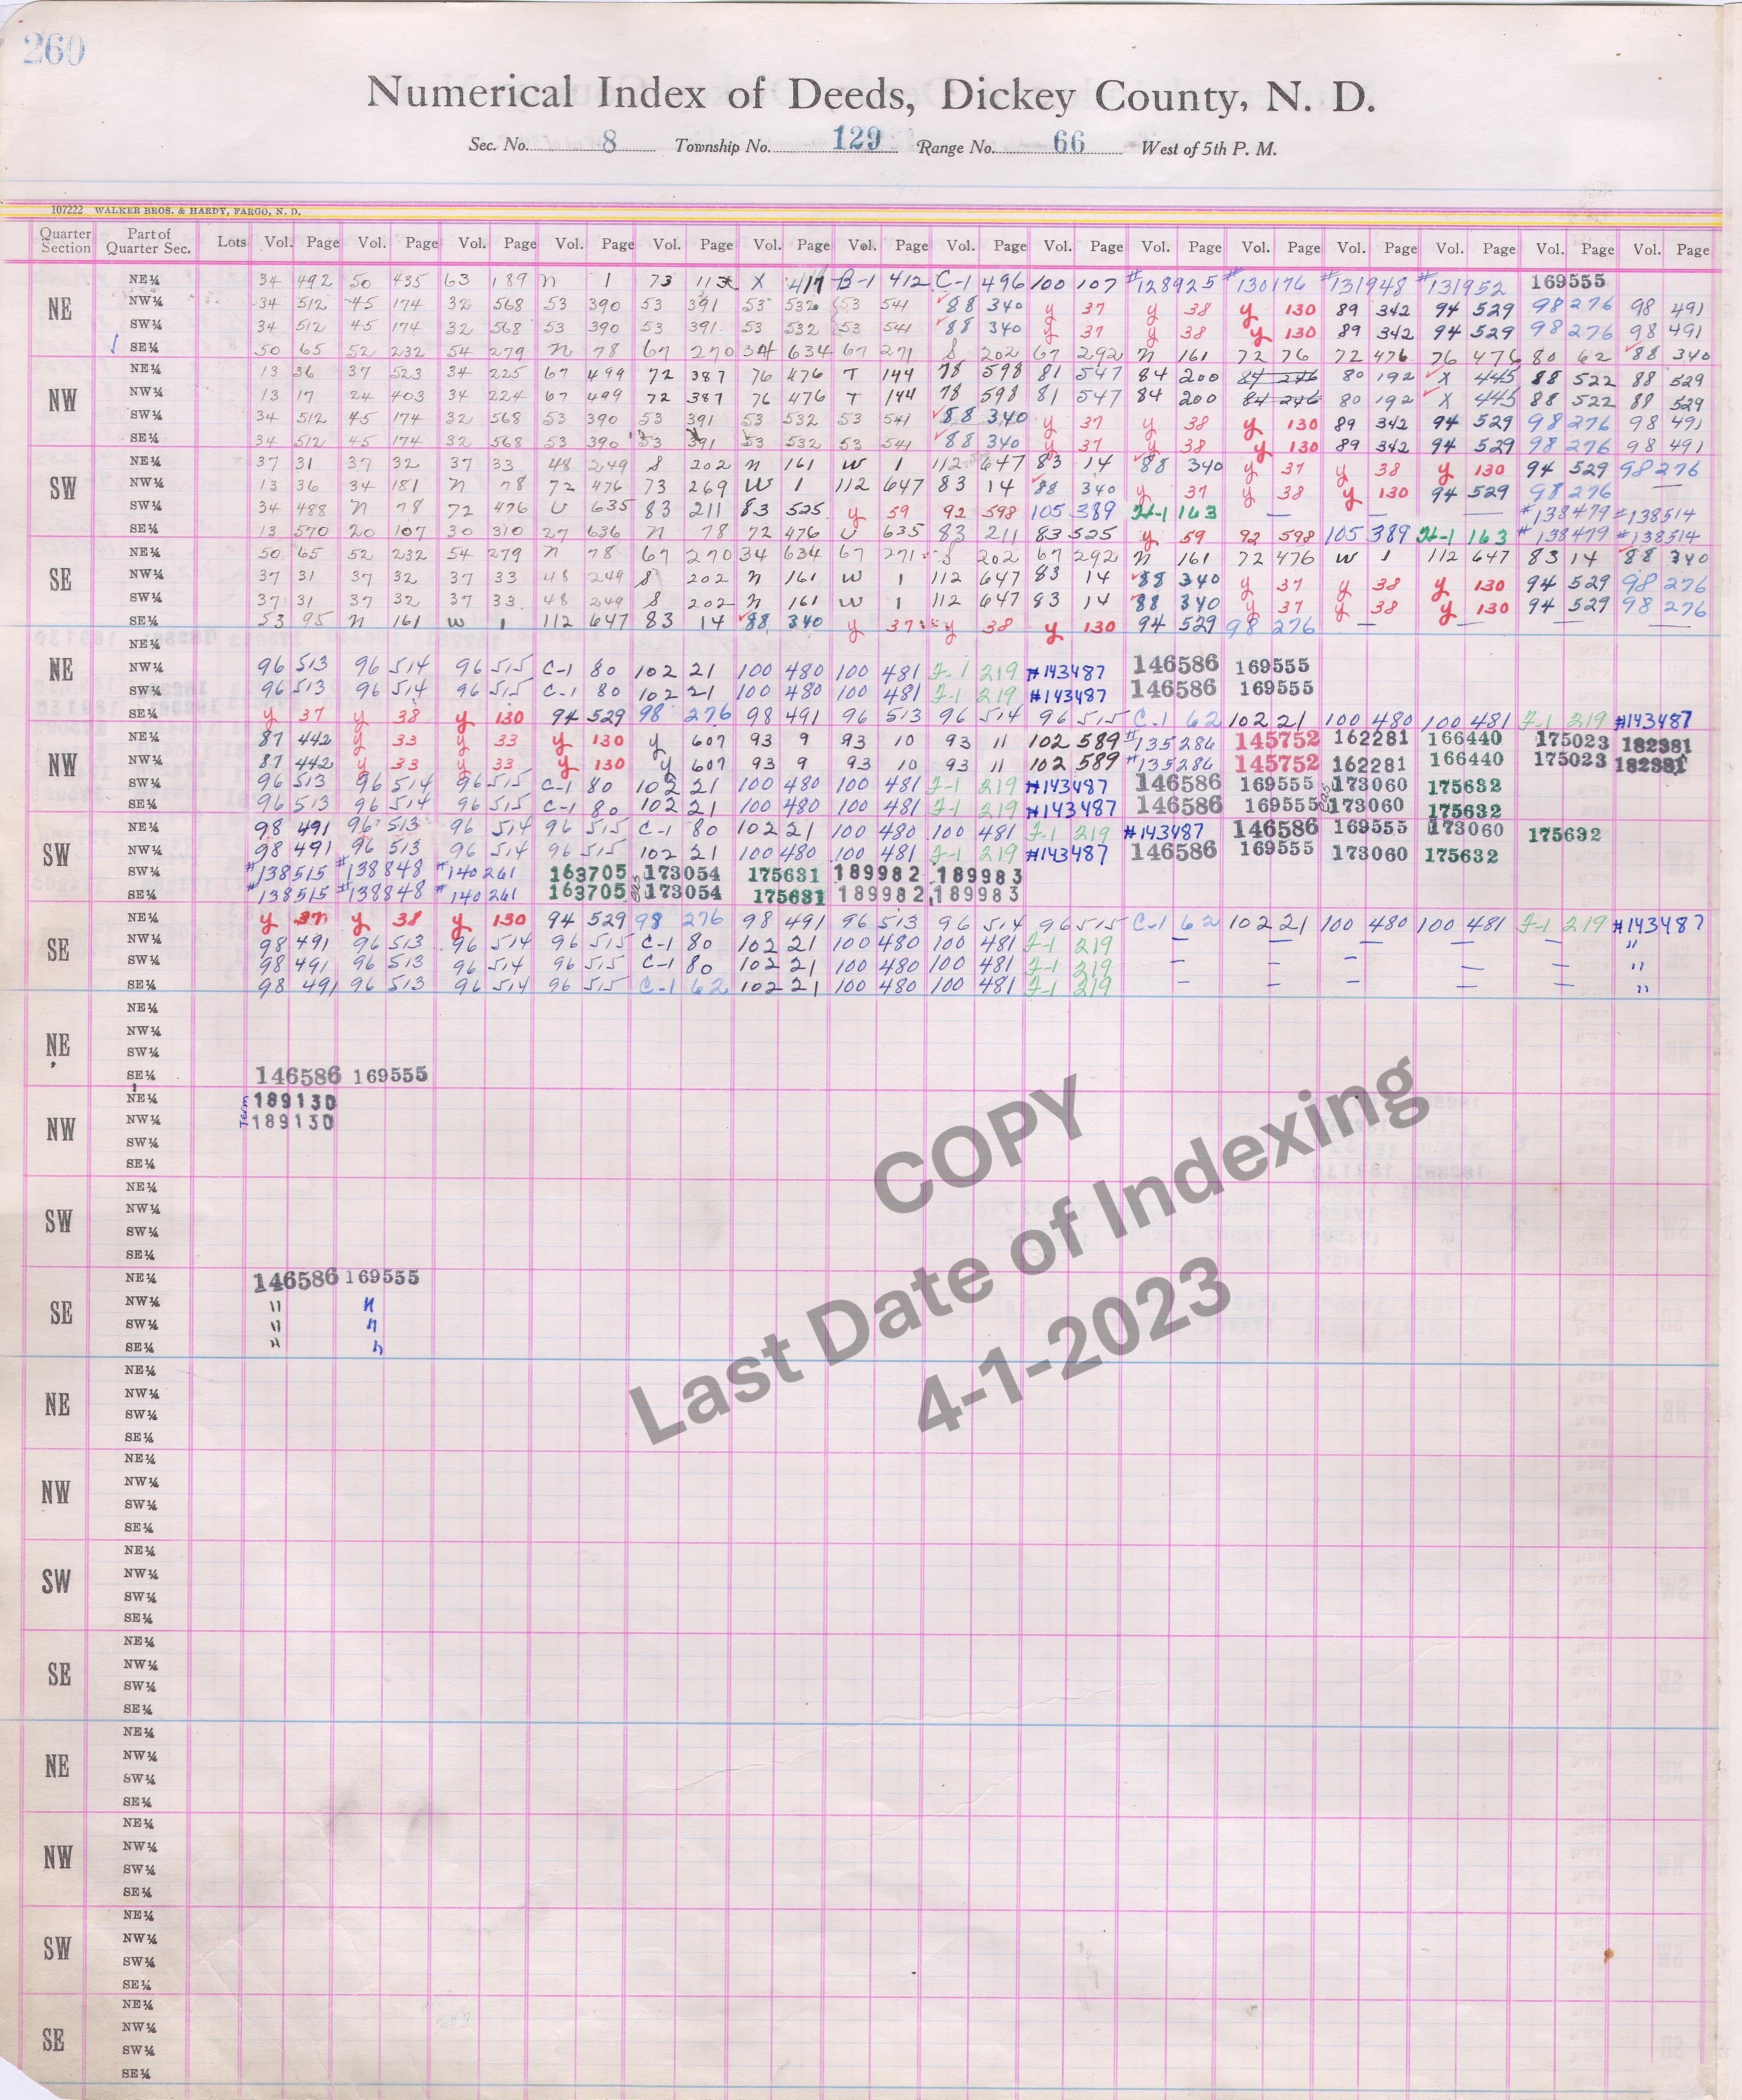 260
Numerical Index of Deeds, Dickey County, N. D.
Sec. No. 8 Township No. 129 Range No. 66 West of 5th P. M.
107222 WALKER BROS. & HARDY, FARGO, N. D.
Quarter Section Part of Quarter Sec. Lots Vol. Page Vol. Page Vol. Page Vol. Page Vol. Page Vol. Page Vol. Page Vol. Page Vol. Page Vol. Page Vol. Page Vol. Page Vol. Page Vol. Page Vol. Page
NE
NE¼ 34 492 50 435 63 189 n 1 73 X 417 B-1 412 C-1 496 100 107 #128925 #130176 #131948 #131952 169555
NW¼ 34 512 45 174 32 568 53 390 53 391 53 532 53 541 88 340 y 37 y 38 y 130 89 342 94 529 98 276 98 491
SW¼ 34 512 45 174 32 568 53 390 53 391 53 532 53 541 88 340 y 37 y 38 y 130 89 342 94 529 98 276 98 491
SE¼ 50 65 52 232 54 279 n 78 67 270 34 634 67 271 S 202 67 292 n 161 72 76 72 476 76 476 80 62 88 340
NW
NE¼ 13 36 37 523 34 225 67 499 72 387 76 476 T 144 78 598 81 547 84 200 84 246 80 192 X 445 88 522 88 529
NW¼ 13 17 24 403 34 224 67 499 72 387 76 476 T 144 78 598 81 547 84 200 84 246 80 192 X 445 88 522 88 529
SW¼ 34 512 45 174 32 568 53 390 53 391 53 532 53 541 88 340 y 37 y 38 y 130 89 342 94 529 98 276 98 491
SE¼ 34 512 45 174 32 568 53 390 53 391 53 532 53 541 88 340 y 37 y 38 y 130 89 342 94 529 98 276 98 491
SW
NE¼ 37 31 37 32 37 33 48 249 S 202 n 161 W 1 112 647 83 14 88 340 y 37 y 38 y 130 94 529 98 276
NW¼ 13 36 34 181 n 78 72 476 73 269 W 1 112 647 83 14 88 340 y 37 y 38 y 130 94 529 98 276 —
SW¼ 34 488 n 78 72 476 U 635 83 211 83 525 y 59 92 598 105 389 H-1 163 — — — #138479 #138514
SE¼ 13 570 20 107 30 310 27 636 n 78 72 476 U 635 83 211 83 525 y 59 92 598 105 389 H-1 163 #138479 #138514
SE
NE¼ 50 65 52 232 54 279 n 78 67 270 34 634 67 271 S 202 67 292 n 161 72 476 W 1 112 647 83 14 88 340
NW¼ 37 31 37 32 37 33 48 249 S 202 n 161 W 1 112 647 83 14 88 340 y 37 y 38 y 130 94 529 98 276
SW¼ 37 31 37 32 37 33 48 249 S 202 n 161 W 1 112 647 83 14 88 340 y 37 y 38 y 130 94 529 98 276
SE¼ 53 95 n 161 W 1 112 647 83 14 88 340 y 37 y 38 y 130 94 529 98 276 — — —
NE
NE¼
NW¼ 96 513 96 514 96 515 C-1 80 102 21 100 480 100 481 F-1 219 #143487 146586 169555
SW¼ 96 513 96 514 96 515 C-1 80 102 21 100 480 100 481 F-1 219 #143487 146586 169555
SE¼ y 37 y 38 y 130 94 529 98 276 98 491 96 513 96 514 96 515 C-1 62 102 21 100 480 100 481 F-1 219 #143487
NW
NE¼ 87 442 y 33 y 33 y 130 y 607 93 9 93 10 93 11 102 589 #135286 145752 162281 166440 175023 182381
NW¼ 87 442 y 33 y 33 y 130 y 607 93 9 93 10 93 11 102 589 #135286 145752 162281 166440 175023 182381
SW¼ 96 513 96 514 96 515 C-1 80 102 21 100 480 100 481 F-1 219 #143487 146586 169555 173060 175632
SE¼ 96 513 96 514 96 515 C-1 80 102 21 100 480 100 481 F-1 219 #143487 146586 169555 eas 173060 175632
SW
NE¼ 98 491 96 513 96 514 96 515 C-1 80 102 21 100 480 100 481 F-1 219 #143487 146586 169555 173060 175632
NW¼ 98 491 96 513 96 514 96 515 102 21 100 480 100 481 F-1 219 #143487 146586 169555 173060 175632
SW¼ #138515 #138848 #140261 163705 173054 175631 189982 189983
SE¼ #138515 #138848 #140261 163705 eas 173054 175631 189982 189983
SE
NE¼ y 37 y 38 y 130 94 529 98 276 98 491 96 513 96 514 96 515 C-1 62 102 21 100 480 100 481 F-1 219 #143487
NW¼ 98 491 96 513 96 514 96 515 C-1 80 102 21 100 480 100 481 F-1 219 — — — — — "
SW¼ 98 491 96 513 96 514 96 515 C-1 80 102 21 100 480 100 481 F-1 219 — — — — — "
SE¼ 98 491 96 513 96 514 96 515 C-1 62 102 21 100 480 100 481 F-1 219 — — — — — "
NE
NE¼
NW¼
SW¼
SE¼ 146586 169555
NW
NE¼ Term 189130
NW¼ 189130
SW¼
SE¼
SW
NE¼
NW¼
SW¼
SE¼
SE
NE¼ 146586 169555
NW¼ " "
SW¼ " "
SE¼ " "
NE
NE¼
NW¼
SW¼
SE¼
NW
NE¼
NW¼
SW¼
SE¼
SW
NE¼
NW¼
SW¼
SE¼
SE
NE¼
NW¼
SW¼
SE¼
NE
NE¼
NW¼
SW¼
SE¼
NW
NE¼
NW¼
SW¼
SE¼
SW
NE¼
NW¼
SW¼
SE¼
SE
NE¼
NW¼
SW¼
SE¼
COPY
Last Date of Indexing
4-1-2023